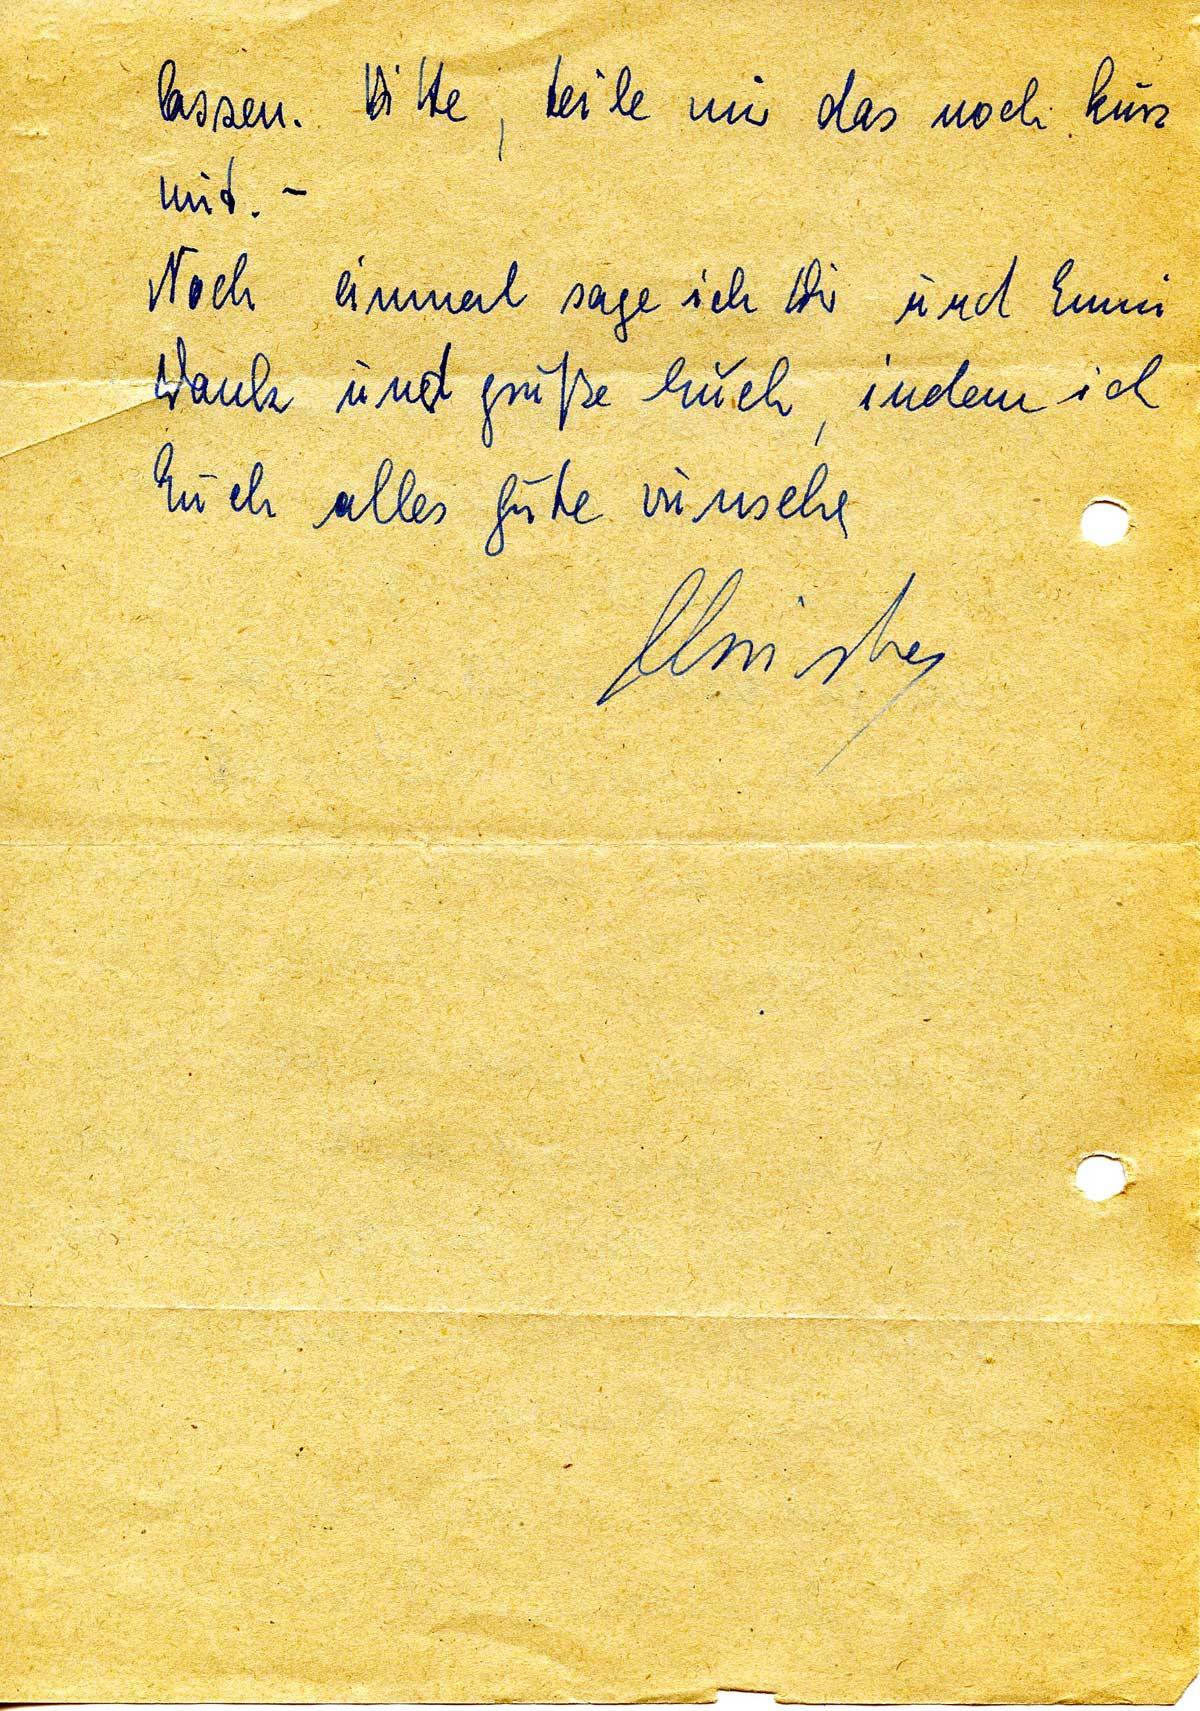 lassen. Bitte, teile mir das noch kurz
mit. –
Noch einmal sage ich Dir und Emmi
Dank und grüße Euch, indem ich
Euch alles gute wünsche